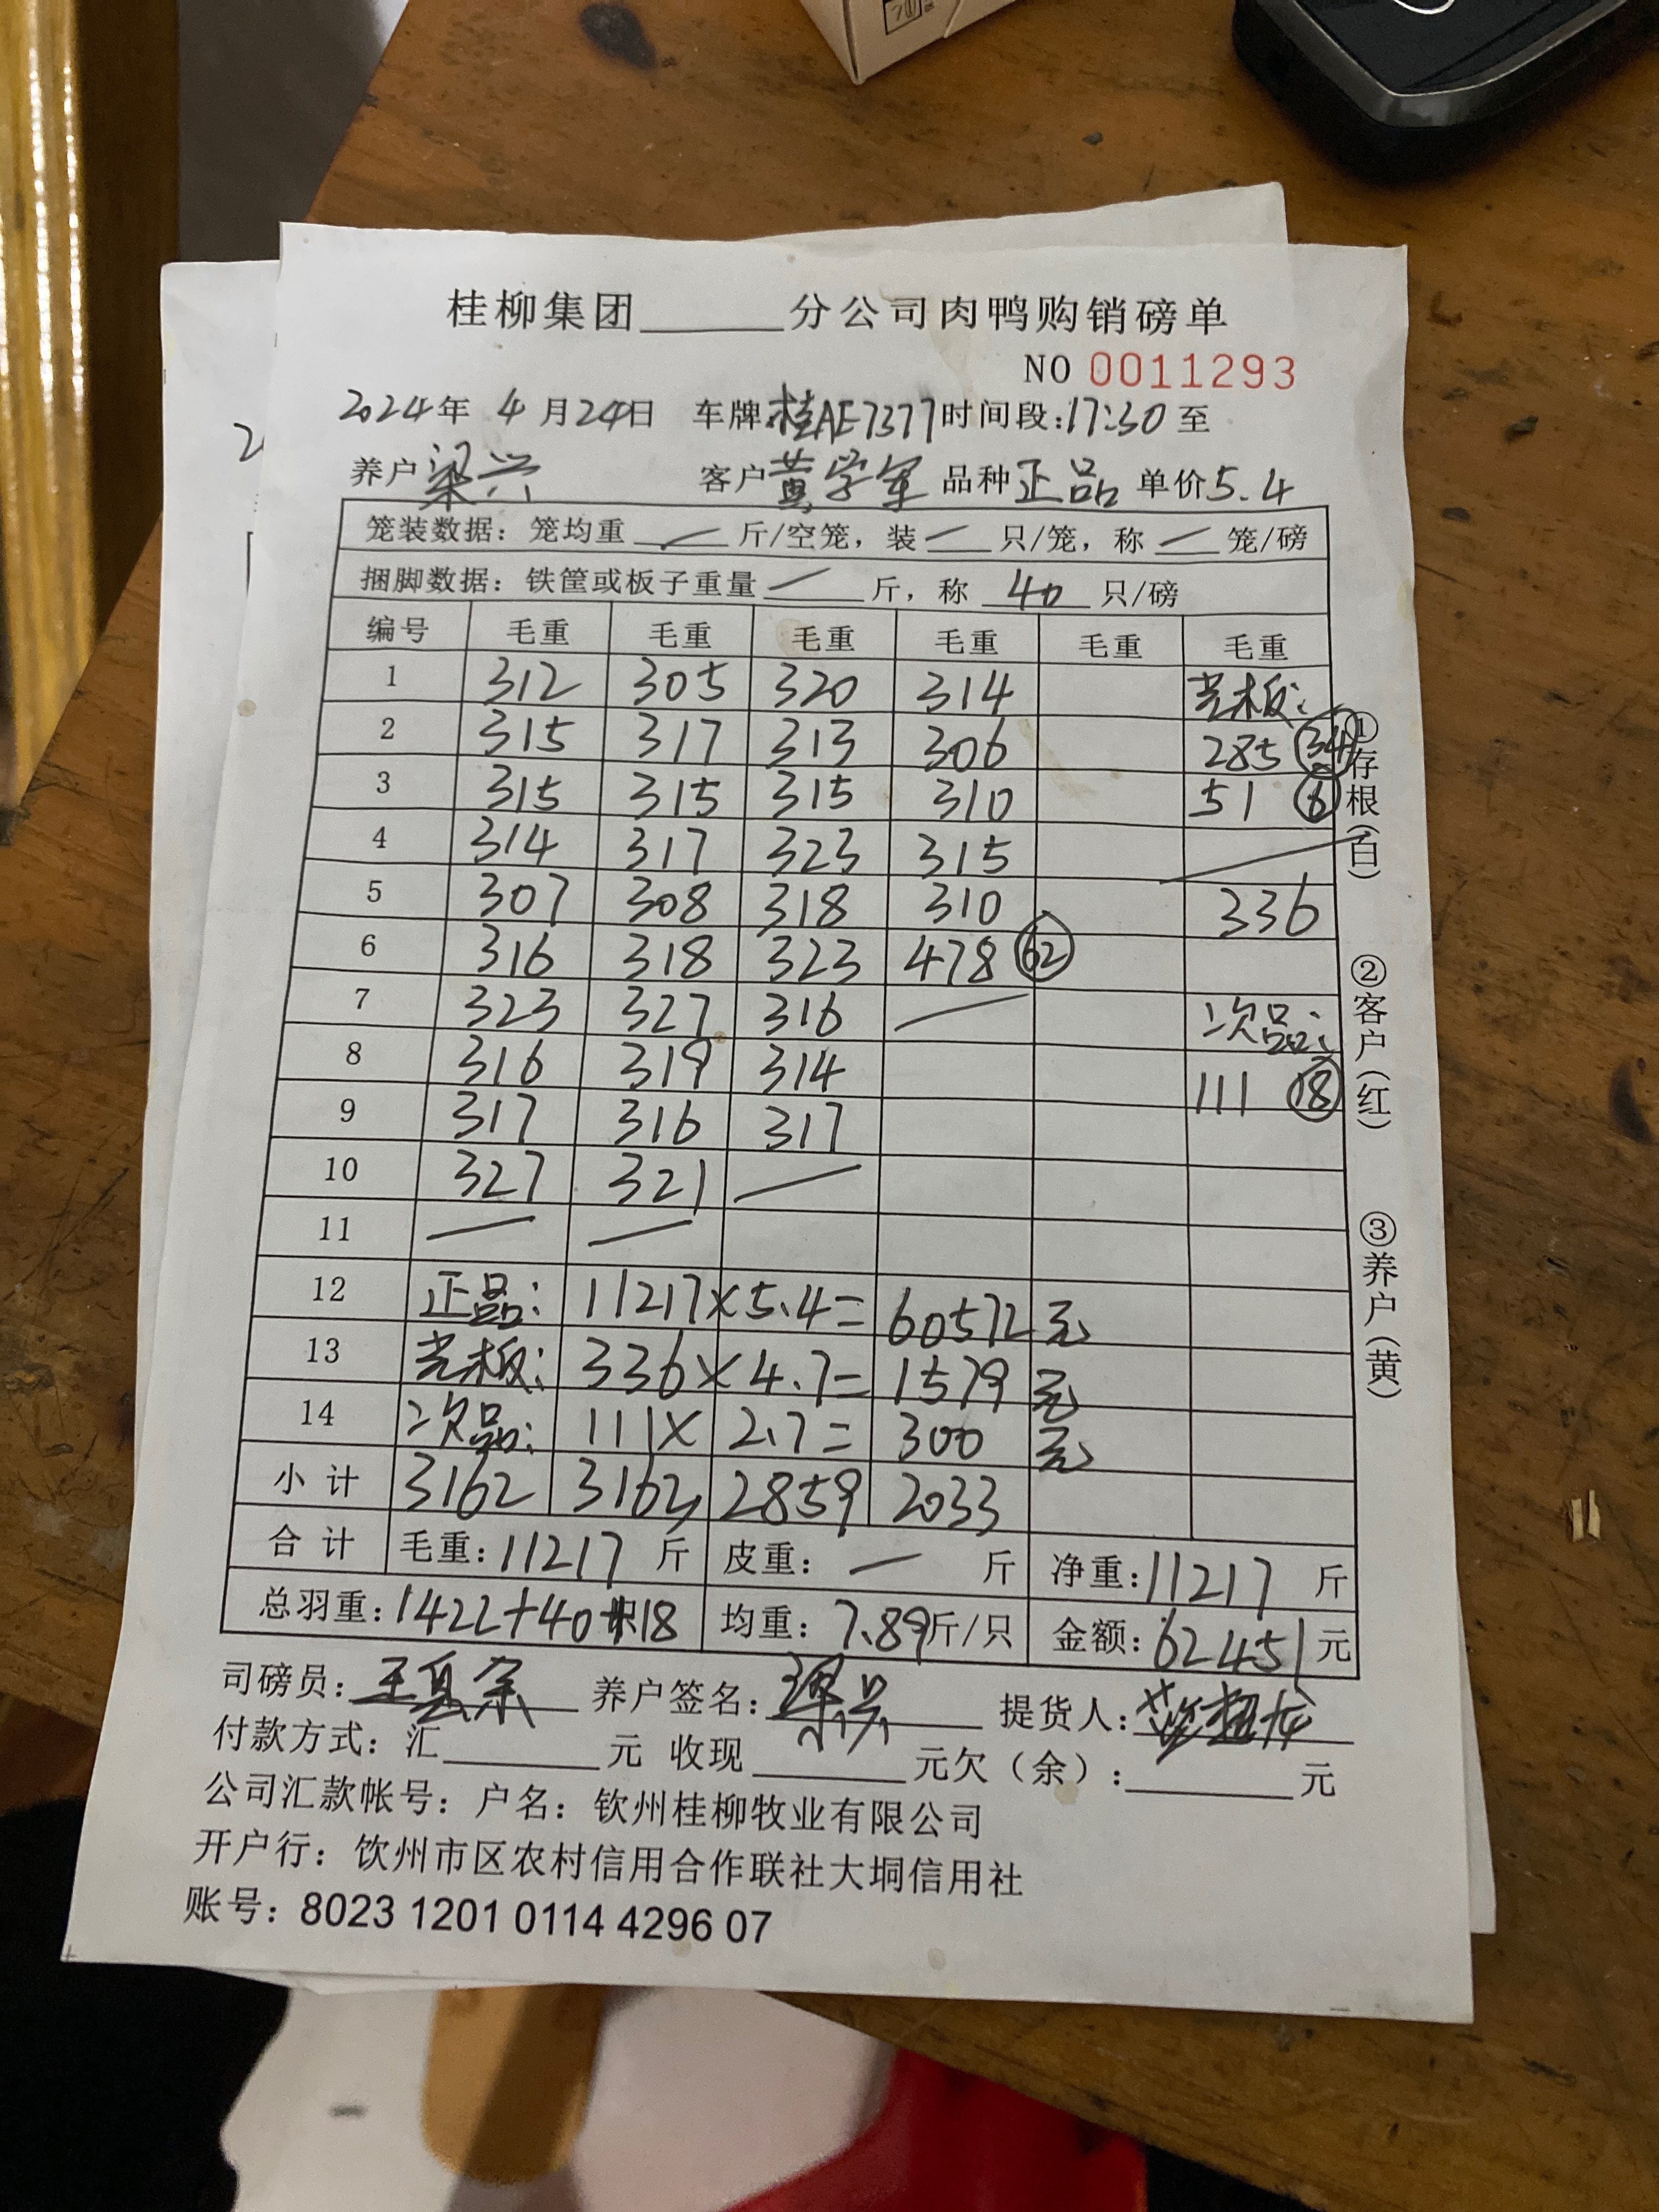 桂柳集团______分公司肉鸭购销磅单
NO 0011293
2024年 4 月24日 车牌:桂AE7377 时间段:17:30 至
养户 梁兴 客户 黄学军 品种 正品 单价 5.4
笼装数据：笼均重 — 斤/空笼，装 — 只/笼，称 — 笼/磅
捆脚数据：铁筐或板子重量 — 斤，称 40 只/磅
编号 毛重 毛重 毛重 毛重 毛重 毛重
1 312 305 320 314 光板:
2 315 317 313 306 285 34
3 315 315 315 310 51 6
4 314 317 323 315
5 307 308 318 310 336
6 316 318 323 478 62
7 323 327 316 — 次品:
8 316 319 314 111 18
9 317 316 317
10 327 321 —
11 — —
12 正品: 11217×5.4= 60572元
13 光板: 336×4.7= 1579元
14 次品: 111×2.7= 300元
小计 3162 3162 2859 2033
合计 毛重:11217 斤 皮重: — 斤 净重:11217 斤
总羽重:1422+40+18 均重:7.89斤/只 金额:62451元
司磅员: 养户签名:梁兴 提货人:
付款方式: 汇______元 收现______元欠（余）:______元
公司汇款帐号：户名：钦州桂柳牧业有限公司
开户行：饮州市区农村信用合作联社大垌信用社
账号：8023 1201 0114 4296 07
①存根(白) ②客户(红) ③养户(黄)